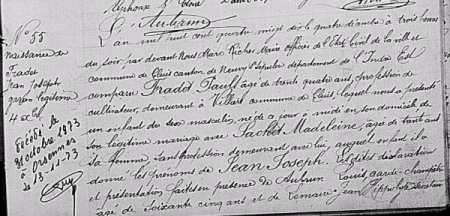 N° 55
Naissance de
Pradot
Jean Joseph
garçon légitime
4 8bre
Décédé le
31 octobre 1973
à
13-11-73
L'an mil huit cent quatre vingt dix le quatre d'octobre à trois heures
du soir, par devant Nous Marc Richer Maire Officier de l'Etat Civil de la ville et
commune de Cluis canton de Neuvy St Sépulcre département de l'Indre Est
comparu Pradot Paul âgé de trente quatre ans, profession de
cultivateur, demeurant à Villars commune de Cluis, lequel nous a présenté
un enfant du sexe masculin, né de ce jour à midi en son domicile de
son légitime mariage avec Pachot Madeleine, âgée de trente ans
sa femme, sans profession demeurant avec lui, auquel enfant il a
donné les prénoms de Jean Joseph. Lesdites déclaration
et présentation faites en présence de Aubrun Louis garde-champêtre
âgé de soixante cinq ans et de Lemaire Jean Hippolyte